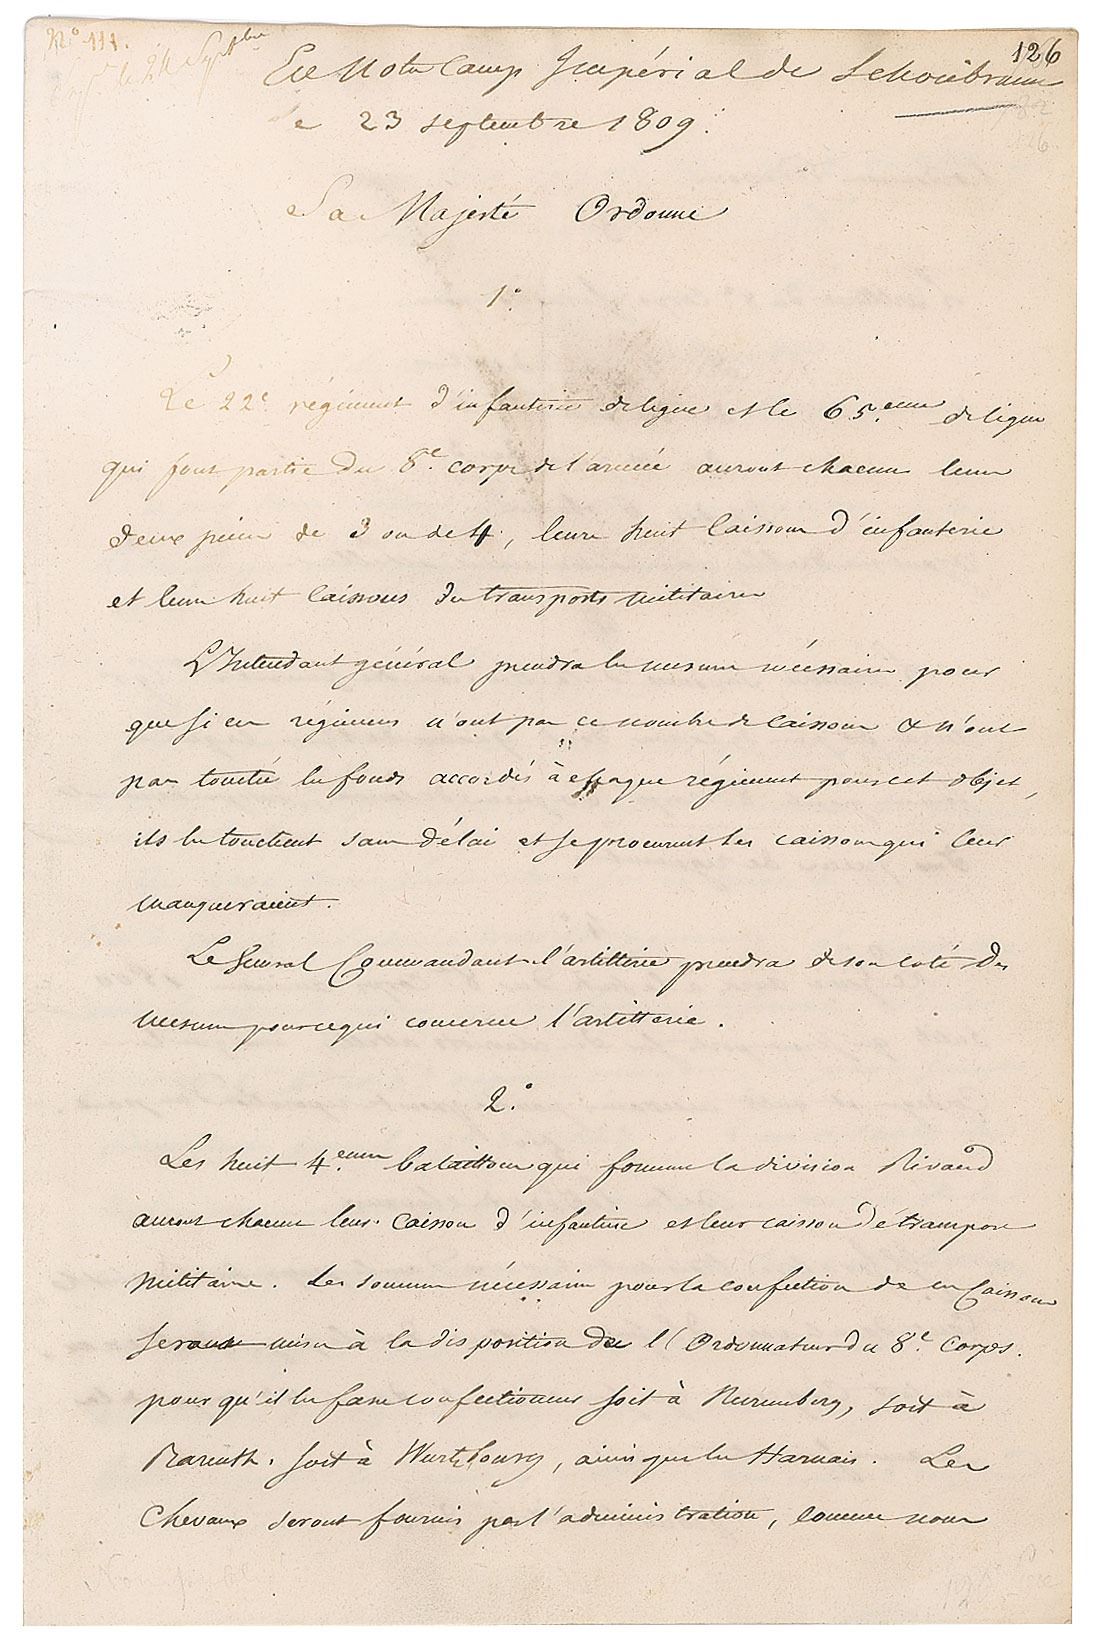 N° 111.
126
le 24 Septbre
En Notre Camp Impérial de Schoenbrunn
le 23 septembre 1809.
Sa Majesté Ordonne
1°
Le 22e régiment d'infanterie de ligne et le 65.eme de ligne
qui font partie du 8e. corps de l'armée auront chacun leurs
deux pièces de 3 ou de 4, leurs huit Caissons d'infanterie
et leurs huit Caissons des transports militaires
L'Intendant général prendra les mesures nécessaires pour
que si ces régimens n'ont pas ce nombre de Caissons & n'ont
pas touché les fonds accordés à chaque régiment pour cet objet,
ils les touchent sans délai et se procurent les caissons qui leur
manqueraient.
Le Général Commandant l'artillerie prendra de son coté des
mesures pour ce qui concerne l'artillerie.
2.°
Les huit 4.emes bataillons qui forment la division Rivaud
auront chacun leur caisson d'infanterie et leur caisson de transport
militaire. Les sommes nécessaires pour la confection de ces Caissons
seront mises à la disposition de l'Ordonnateur du 8e. Corps.
pour qu'il les fasse confectionner soit à Nuremberg, soit à
Bareuth, soit à Wurtzbourg, ainsi que les Harnais. Les
Chevaux seront fournis par l'administration, comme nous